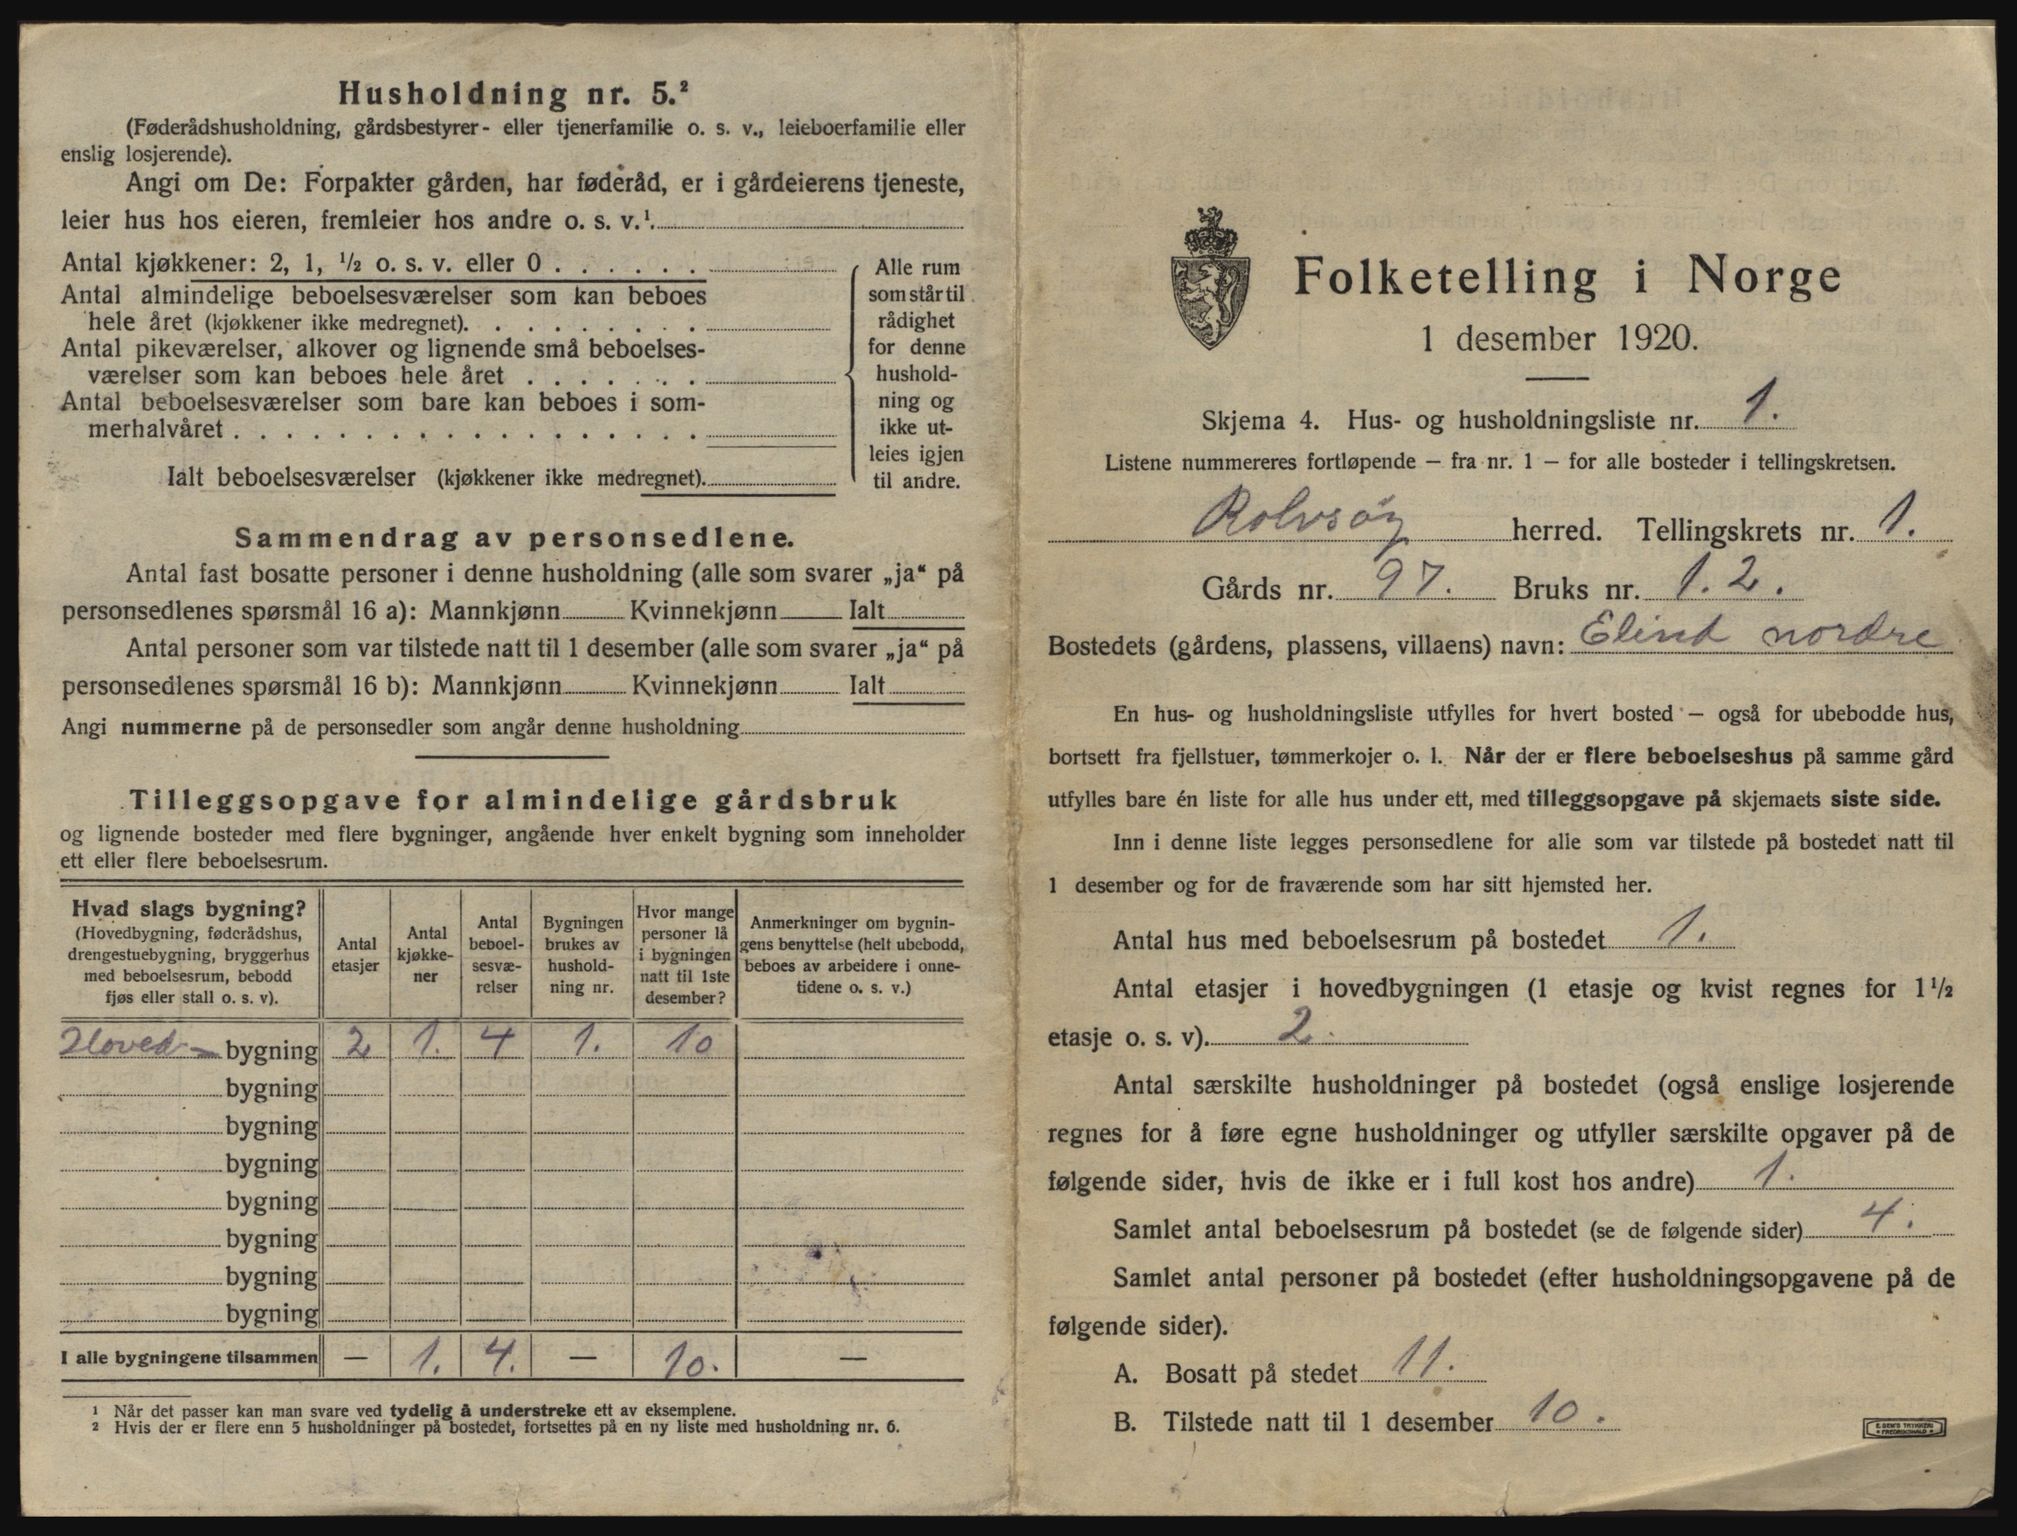 Husholdning nr. 5.²
(Føderådshusholdning, gårdsbestyrer- eller tjenerfamilie o. s. v., leieboerfamilie eller
enslig losjerende).
Angi om De: Forpakter gården, har føderåd, er i gårdeierens tjeneste,
leier hus hos eieren, fremleier hos andre o. s. v.¹
Antal kjøkkener: 2, 1, ½ o. s. v. eller 0
Antal almindelige beboelsesværelser som kan beboes
hele året (kjøkkener ikke medregnet).
Antal pikeværelser, alkover og lignende små beboelses-
værelser som kan beboes hele året
Antal beboelsesværelser som bare kan beboes i som-
merhalvåret
Ialt beboelsesværelser (kjøkkener ikke medregnet).
Alle rum
som står til
rådighet
for denne
hushold-
ning og
ikke ut-
leies igjen
til andre.
Sammendrag av personsedlene.
Antal fast bosatte personer i denne husholdning (alle som svarer „ja“ på
personsedlenes spørsmål 16 a): Mannkjønn Kvinnekjønn Ialt
Antal personer som var tilstede natt til 1 desember (alle som svarer „ja“ på
personsedlenes spørsmål 16 b): Mannkjønn Kvinnekjønn Ialt
Angi nummerne på de personsedler som angår denne husholdning
Tilleggsopgave for almindelige gårdsbruk
og lignende bosteder med flere bygninger, angående hver enkelt bygning som inneholder
ett eller flere beboelsesrum.
Hvad slags bygning?
(Hovedbygning, føderådshus,
drengestuebygning, bryggerhus
med beboelsesrum, bebodd
fjøs eller stall o. s. v).
Antal
etasjer
Antal
kjøkke-
ner
Antal
beboel-
sesvæ-
relser
Bygningen
brukes av
hushold-
ning nr.
Hvor mange
personer lå
i bygningen
natt til 1ste
desember?
Anmerkninger om bygnin-
gens benyttelse (helt ubebodd,
beboes av arbeidere i onne-
tidene o. s. v.)
Hoved- bygning 2 1. 4 1. 10
bygning
bygning
bygning
bygning
bygning
bygning
bygning
I alle bygningene tilsammen — 1. 4. — 10. —
¹ Når det passer kan man svare ved tydelig å understreke ett av eksemplene.
² Hvis der er flere enn 5 husholdninger på bostedet, fortsettes på en ny liste med husholdning nr. 6.
Folketelling i Norge
1 desember 1920.
Skjema 4. Hus- og husholdningsliste nr. 1.
Listene nummereres fortløpende — fra nr. 1 — for alle bosteder i tellingskretsen.
Rolvsøy herred. Tellingskrets nr. 1.
Gårds nr. 97. Bruks nr. 1. 2.
Bostedets (gårdens, plassens, villaens) navn: Elind nordre
En hus- og husholdningsliste utfylles for hvert bosted — også for ubebodde hus,
bortsett fra fjellstuer, tømmerkojer o. l. Når der er flere beboelseshus på samme gård
utfylles bare én liste for alle hus under ett, med tilleggsopgave på skjemaets siste side.
Inn i denne liste legges personsedlene for alle som var tilstede på bostedet natt til
1 desember og for de fraværende som har sitt hjemsted her.
Antal hus med beboelsesrum på bostedet 1.
Antal etasjer i hovedbygningen (1 etasje og kvist regnes for 1½
etasje o. s. v). 2.
Antal særskilte husholdninger på bostedet (også enslige losjerende
regnes for å føre egne husholdninger og utfyller særskilte opgaver på de
følgende sider, hvis de ikke er i full kost hos andre) 1.
Samlet antal beboelsesrum på bostedet (se de følgende sider) 4.
Samlet antal personer på bostedet (efter husholdningsopgavene på de
følgende sider).
A. Bosatt på stedet 11.
B. Tilstede natt til 1 desember 10.